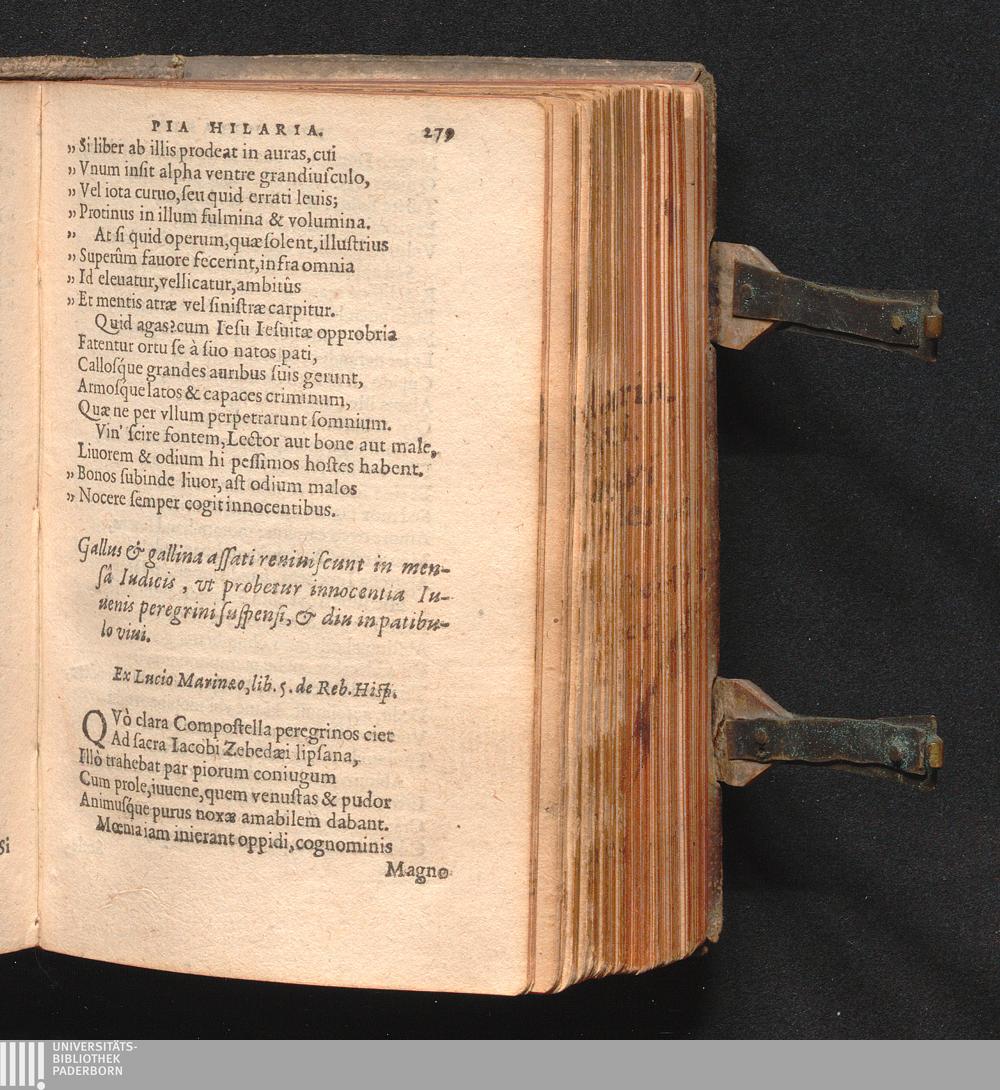 PIA HILARIA. 279
„ Si liber ab illis prodeat in auras, cui
„ Vnum insit alpha ventre grandiusculo,
„ Vel iota curuo, seu quid errati leuis;
„ Protinus in illum fulmina & volumina.
„ At si quid operum, quæ solent, illustrius
„ Superûm fauore fecerint, infra omnia
„ Id eleuatur, vellicatur, ambitûs
„ Et mentis atræ vel sinistræ carpitur.
Quid agas? cum Iesu Iesuitæ opprobria
Fatentur ortu se à suo natos pati,
Callosq́ue grandes auribus suis gerunt,
Armosq́ue latos & capaces criminum,
Quæ ne per vllum perpetrarunt somnium.
Vin' scire fontem, Lector aut bone aut male,
Liuorem & odium hi pessimos hostes habent.
„ Bonos subinde liuor, ast odium malos
„ Nocere semper cogit innocentibus.
Gallus & gallina assati reuiuiscunt in men-
sâ Iudicis, vt probetur innocentia Iu-
uenis peregrini suspensi, & diu in patibu-
lo viui.
Ex Lucio Marinæo, lib. 5. de Reb. Hisp.
QVò clara Compostella peregrinos ciet
Ad sacra Iacobi Zebedæi lipsana,
Illò trahebat par piorum coniugum
Cum prole, iuuene, quem venustas & pudor
Animusq́ue purus noxæ amabilem dabant.
Mœnia iam inierant oppidi, cognominis
Magno
Si
UNIVERSITÄTS-
BIBLIOTHEK
PADERBORN